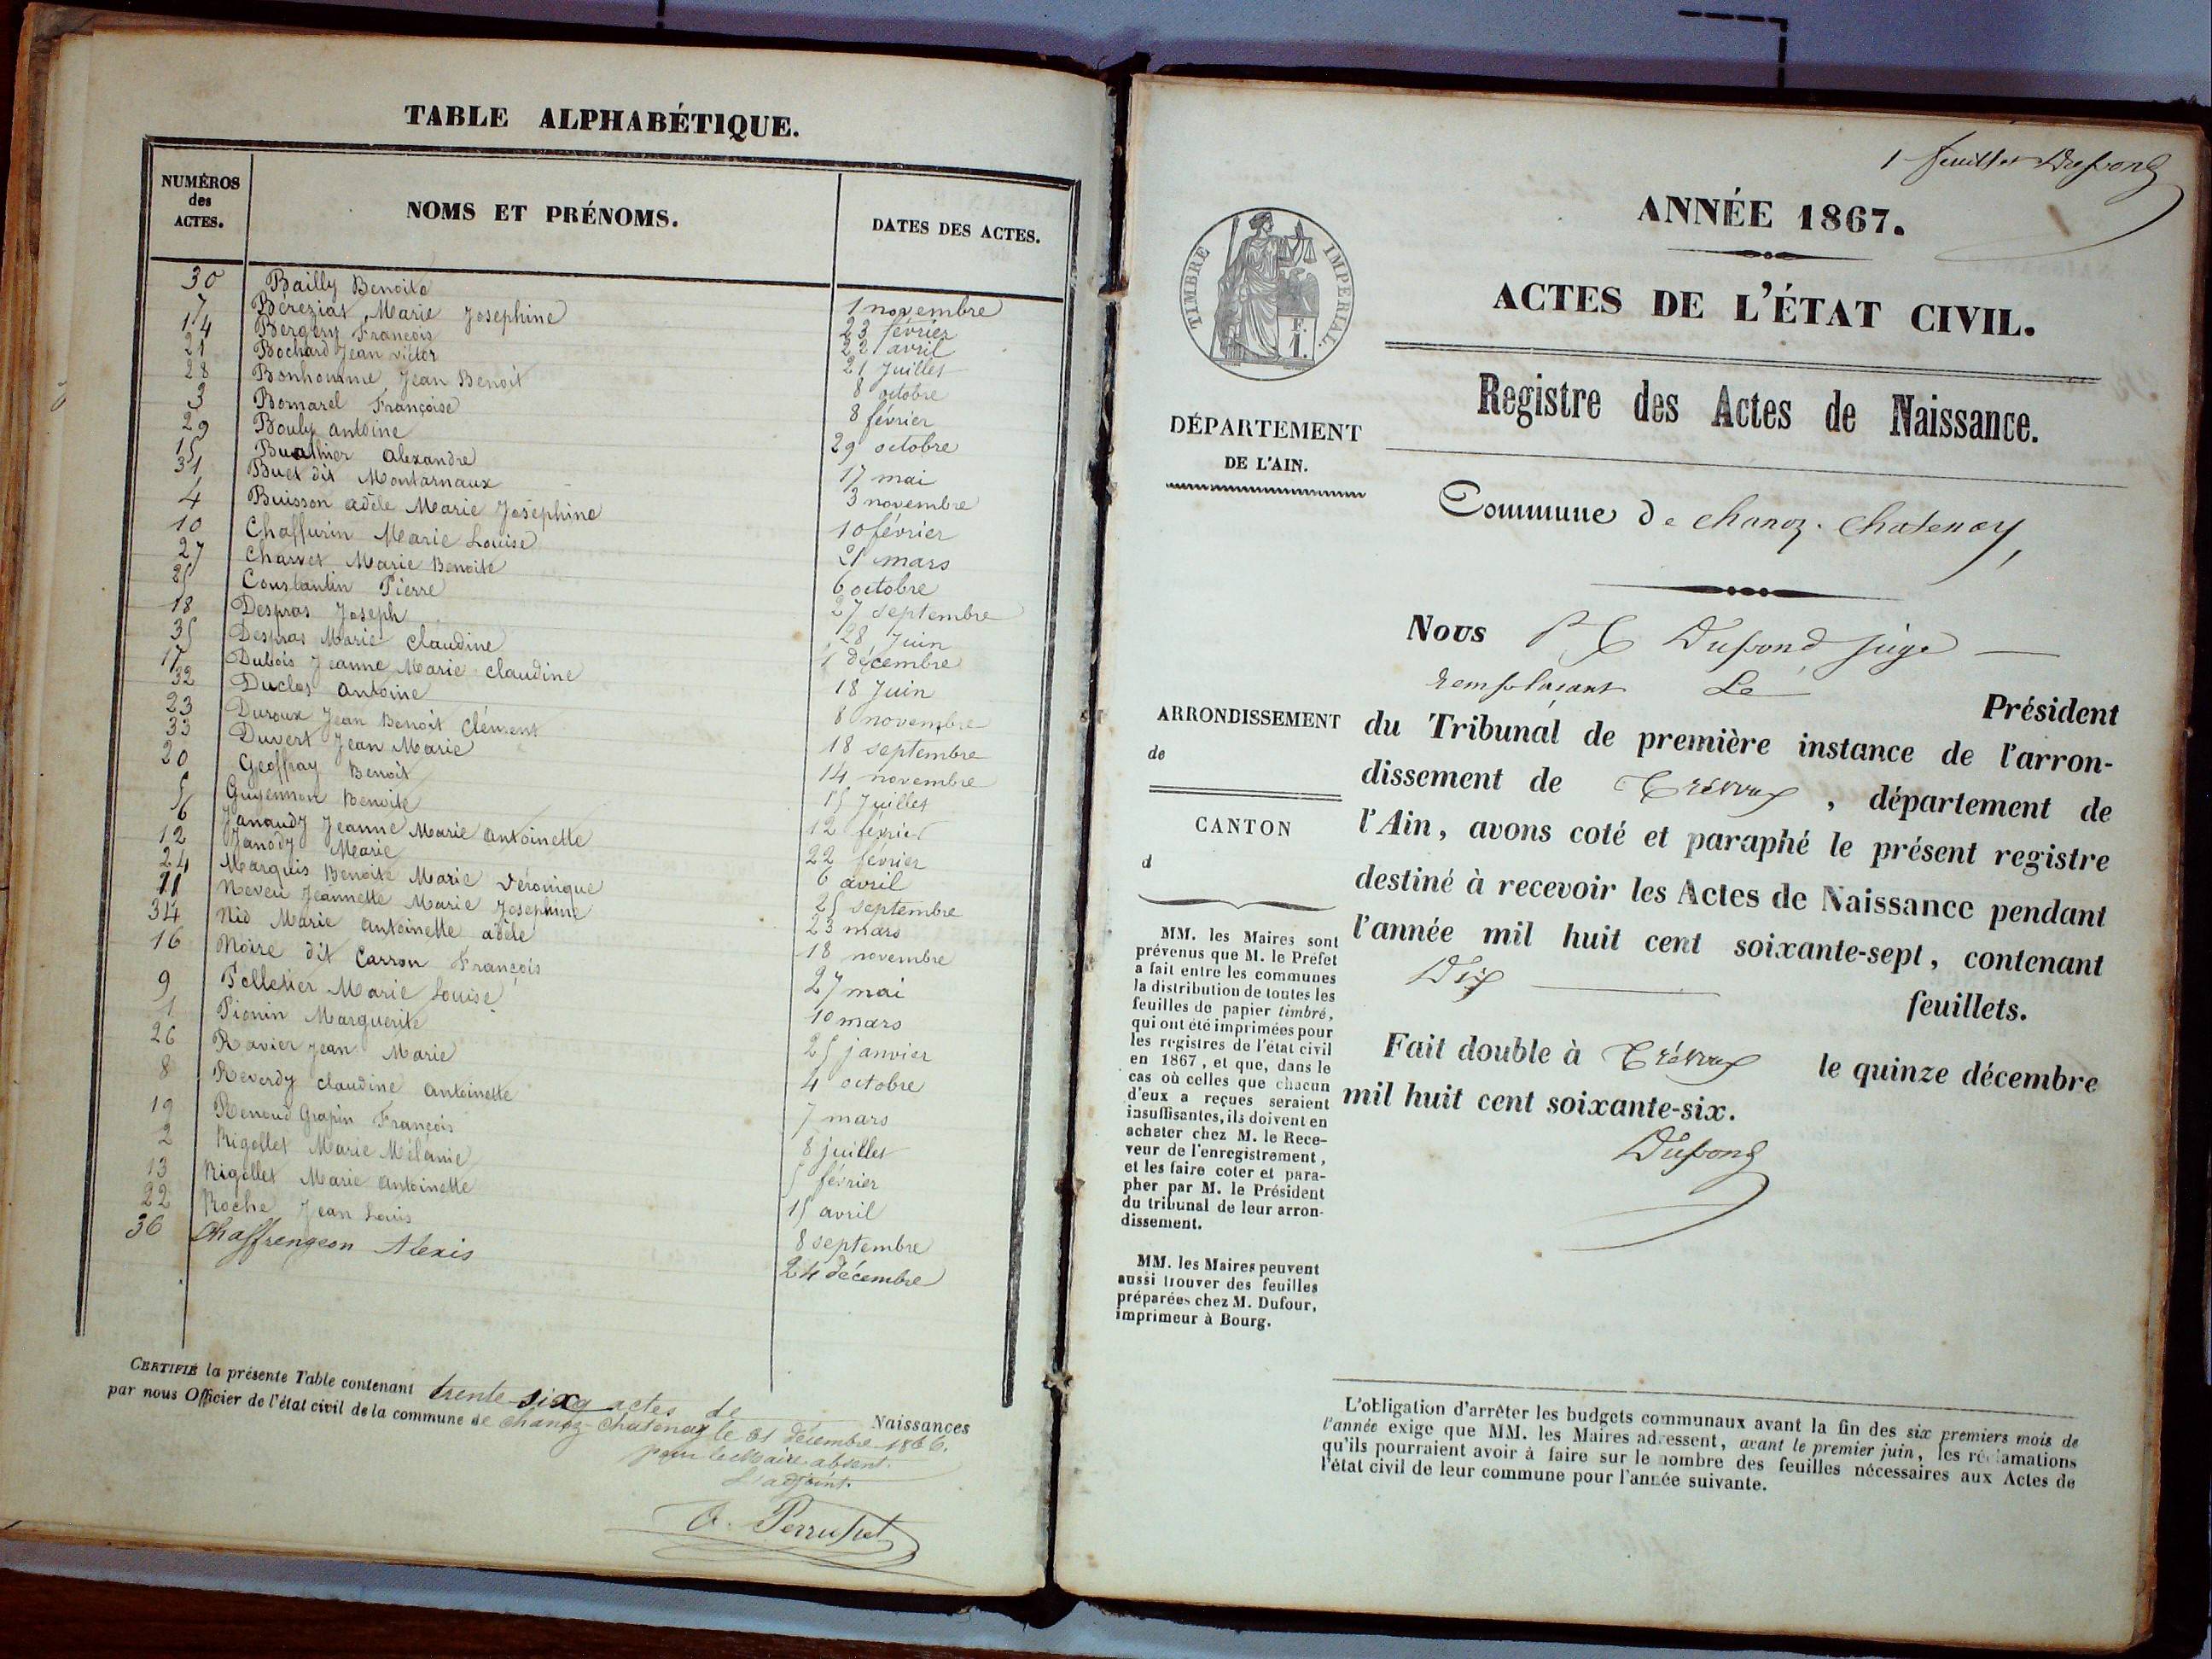 TABLE ALPHABÉTIQUE.
NUMÉROS des ACTES.
NOMS ET PRÉNOMS.
DATES DES ACTES.
30 Bailly Benoite 1 novembre
7 Béréziat Marie Josephine 23 février
14 Bergery François 22 avril
21 Bochard Jean victor 21 Juillet
28 Bonhomme Jean Benoit 8 octobre
3 Bornarel Françoise 8 février
29 Bouly antoine 29 octobre
15 Buathier alexandre 17 mai
31 Buet dit Montarnaux 3 novembre
4 Buisson adèle Marie Joséphine 10 février
10 Chaffurin Marie Louise 21 mars
27 Charvet Marie Benoite 6 octobre
25 Constantin Pierre 27 septembre
18 Despras Joseph 28 Juin
35 Despras Marie claudine 1 décembre
17 Dubois Jeanne Marie claudine 18 Juin
32 Duclos antoine 8 novembre
23 Duroux Jean Benoit Clément 18 septembre
33 Duvert Jean Marie 14 novembre
20 Geoffray Benoit 15 Juillet
5 Guyennon Benoite 12 février
6 Janaudy Jeanne Marie antoinette 22 février
12 Janody Marie 6 avril
24 Marquis Benoite Marie Véronique 25 septembre
11 Neveu Jeannette Marie Josephine 23 mars
34 Nid Marie antoinette adèle 18 novembre
16 Noire dit Carron François 27 mai
9 Pelletier Marie Louise 10 mars
1 Pionin Marguerite 25 janvier
26 Ravier Jean Marie 4 octobre
8 Reverdy claudine antoinette 7 mars
19 Renoud Grapin François 8 juillet
2 Rigollet Marie Mélanie 5 février
13 Rigollet Marie antoinette 15 avril
22 Roche Jean Louis 8 septembre
36 Chaffrengeon Alexis 24 décembre
CERTIFIÉ la présente Table contenant trente six actes de Naissances
par nous Officier de l'état civil de la commune de Chanoz-Chatenay le 31 décembre 1866.
pour le Maire absent.
L'adjoint.
1 feuillet Dupond
ANNÉE 1867.
TIMBRE IMPÉRIAL.
F.
1.
ACTES DE L'ÉTAT CIVIL.
Registre des Actes de Naissance.
DÉPARTEMENT
DE L'AIN.
Commune de chanoz-Chatenay
Nous Dupond juge
remplaçant Le Président
ARRONDISSEMENT
de
CANTON
d
du Tribunal de première instance de l'arron-
dissement de Trévoux, département de
l'Ain, avons coté et paraphé le présent registre
destiné à recevoir les Actes de Naissance pendant
l'année mil huit cent soixante-sept, contenant
Dix feuillets.
Fait double à Trévoux le quinze décembre
mil huit cent soixante-six.
Dupond
MM. les Maires sont
prévenus que M. le Préfet
a fait entre les communes
la distribution de toutes les
feuilles de papier timbré,
qui ont été imprimées pour
les registres de l'état civil
en 1867, et que, dans le
cas où celles que chacun
d'eux a reçues seraient
insuffisantes, ils doivent en
acheter chez M. le Rece-
veur de l'enregistrement,
et les faire coter et para-
pher par M. le Président
du tribunal de leur arron-
dissement.
MM. les Maires peuvent
aussi trouver des feuilles
préparées chez M. Dufour,
imprimeur à Bourg.
L'obligation d'arrêter les budgets communaux avant la fin des six premiers mois de
l'année exige que MM. les Maires adressent, avant le premier juin, les réclamations
qu'ils pourraient avoir à faire sur le nombre des feuilles nécessaires aux Actes de
l'état civil de leur commune pour l'année suivante.